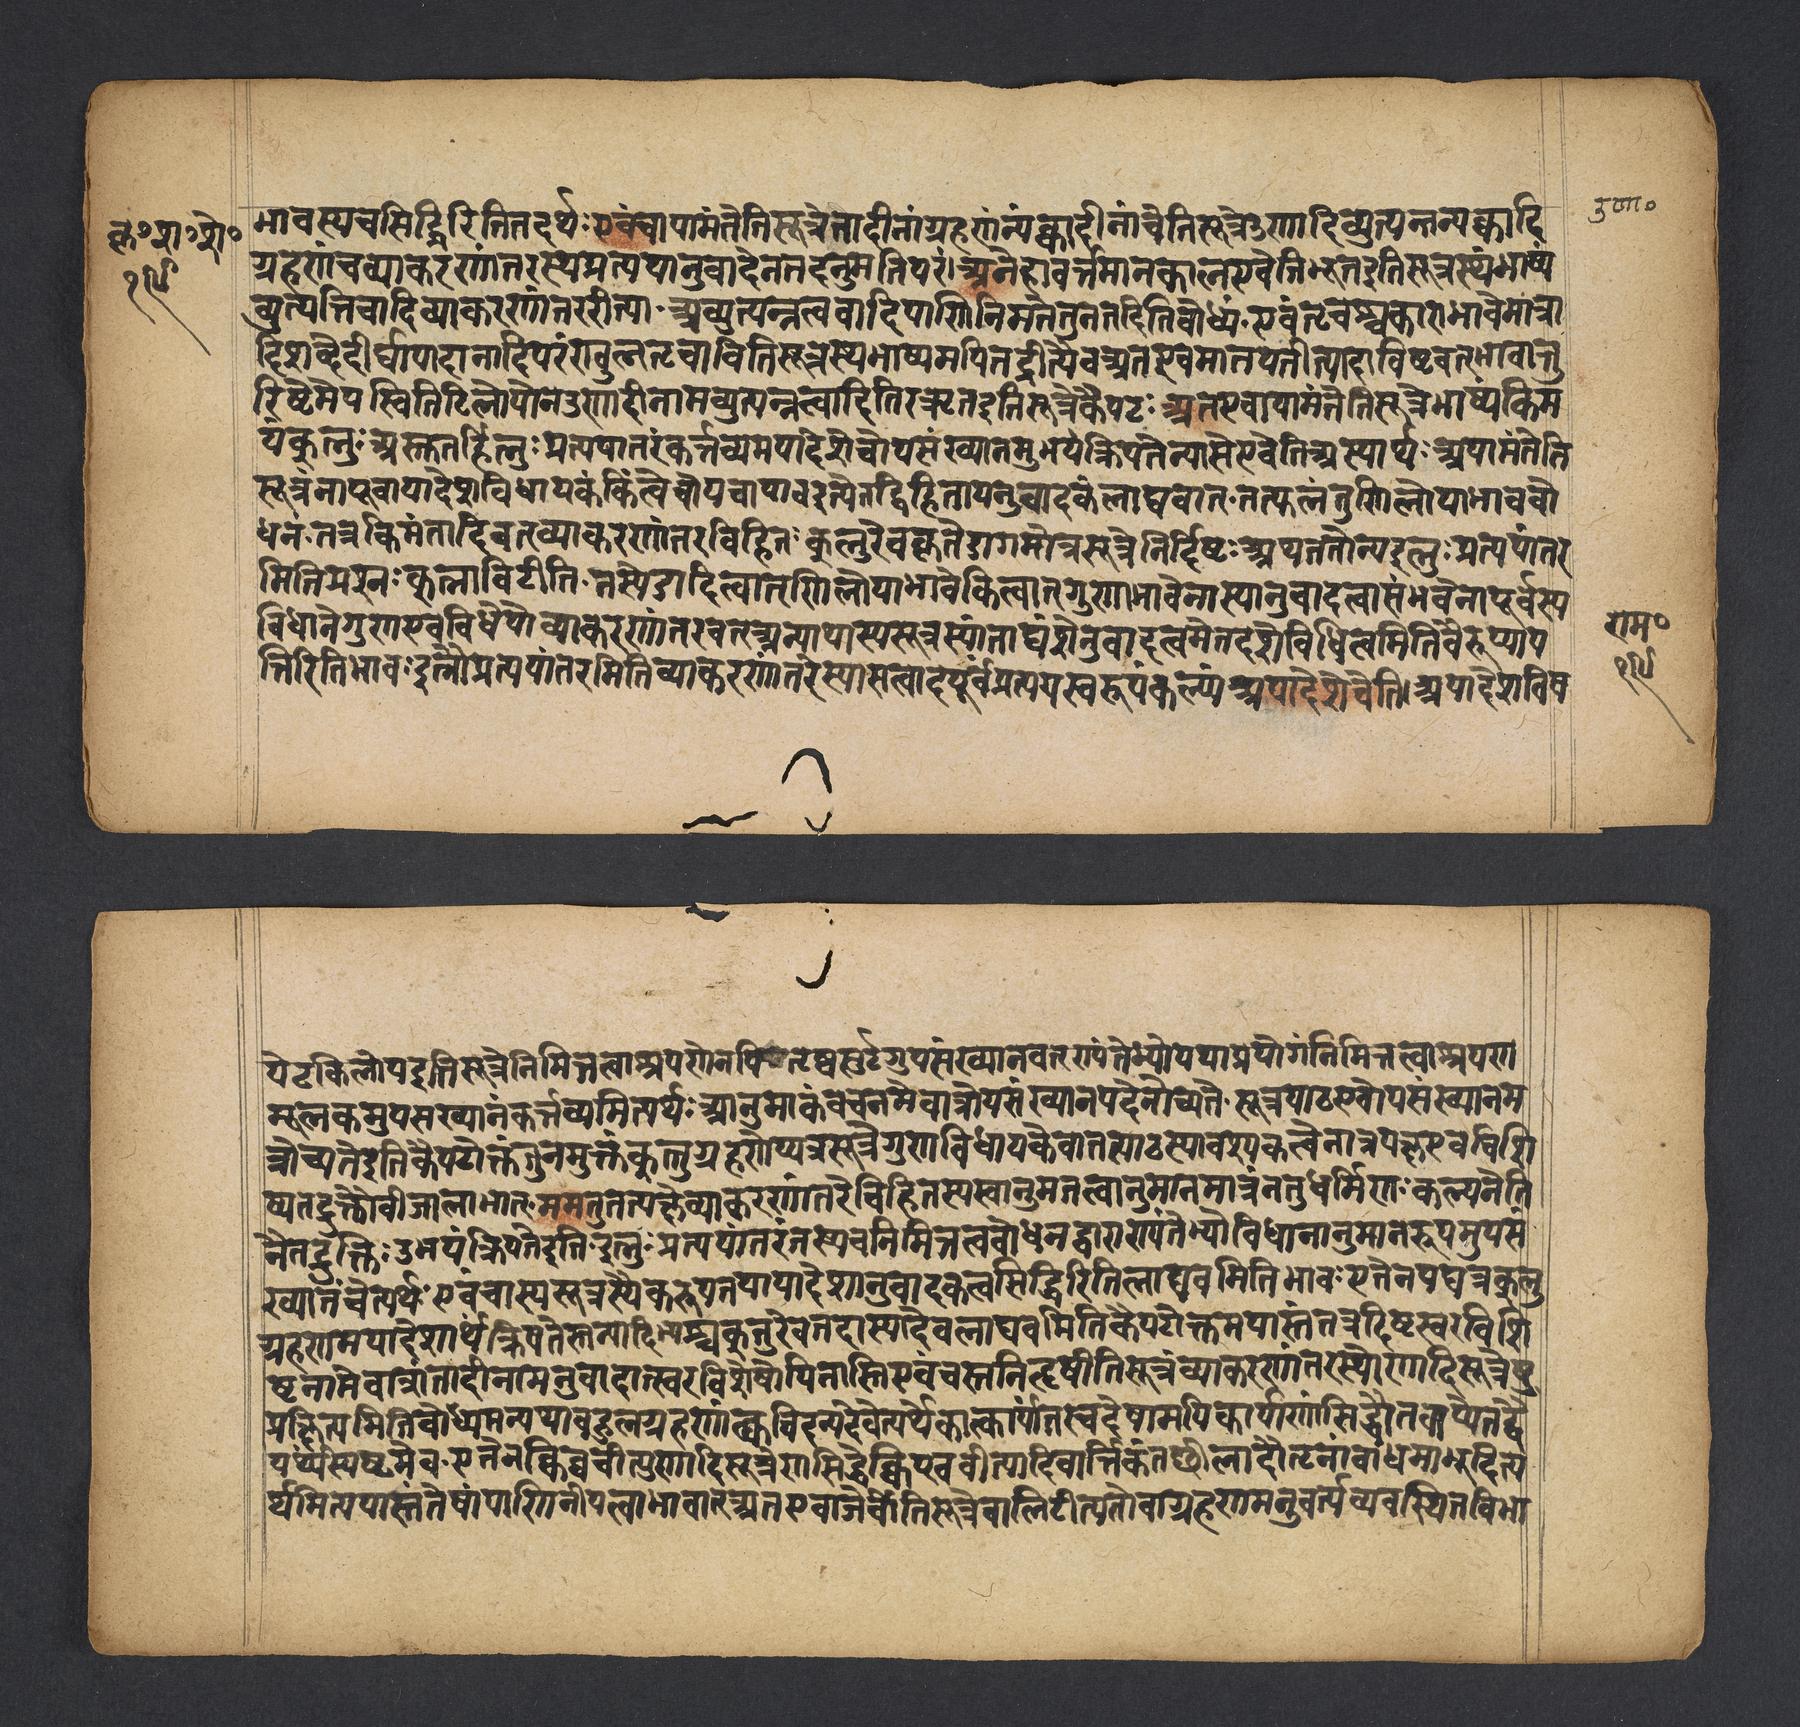 ल० श० शे०
१९५
उणा०
भावस्यचसिद्धिरितितदर्थः एवंचायामंतेतिसूत्रेत्वादीनांग्रहणंन्यंक्वादीनांचेतिसूत्रेउणादिव्युत्पन्नन्यंक्वादि
ग्रहणंचव्याकरणांतरस्थप्रत्ययानुवादेनतदनुमतिपरं। अनेहावर्त्तमानकालएवेतिभूतइतिसूत्रस्थंभाष्यं
व्युत्पत्तिवादिव्याकरणांतररीत्या अव्युत्पन्नत्ववादिपाणिनिमतेतुनतदितिबोध्यं एवंतृचश्चकाराभावेमात्रा
दिशब्देदीर्घापादानादिपरंण्वुल्तृचावितिसूत्रस्थभाष्यमपितद्रीत्यैव अतएवमातयतीत्यादाविष्टवत्भावात्तु
रिष्ठेमेयस्वितिटिलोपोनउणादीनामव्युत्पन्नत्वादितिरऋतइतिसूत्रेकैयटः अतएवायामंतेतिसूत्रेभाष्यंकिम
यंक्नुः अस्तुतर्हित्नुः प्रत्ययांतरंकर्त्तव्यमयादेशेचोपसंख्यातमुभयंक्रियतेन्यासेएवेतिअस्यार्थः अयामंतेति
सूत्रंनापूर्वायादेशविधायकंकिंत्वेवोपचायावइत्येतद्विहितायनुवादकंलाघवात् तत्फलंतुणिलोपाभावबो
धनं तत्रकिमंतादिवत्व्याकरणांतरविहितः क्नुरेवकृतेडागमोत्रसूत्रेनिर्दिष्टः अथततोन्यइत्नुः प्रत्ययांतर
मितिप्रश्नः क्त्नावितीति तस्येडादित्वात्णिलोपाभावेकित्वात्गुणाभावेनास्यानुवादत्वासंभवेनापूर्वस्य
विधानेगुणएवविधेयोव्याकरणांतरवत्अन्यथास्यसूत्रस्यांताद्यंशेनुवादत्वमेतदंशेविधित्वमितिवैरूप्याप
त्तिरितिभावः इत्नौप्रत्ययांतरमितिव्याकरणांतरस्थासत्वादपूर्वप्रत्ययस्वरूपंकल्प्यं अयादेशेचेति। अयादेशविष
राम०
१९५
येटकिलोपइतिसूत्रेनिमित्तत्वाश्रयणेनपि तृष्वसुर्टगुपसंख्यानवत्ण्यंतेभ्योयथाप्रयोगंनिमित्तत्वाश्रयण
मूलकमुपसंख्यानंकर्त्तव्यमित्यर्थः आनुमाकंवचनमेवात्रोपसंख्यानपदेनोच्यते सूत्रपाठएवोपसंख्यानम
त्रोच्यतेइतिकैयटोक्तंतुनमुक्तंक्नुग्रहणेप्यत्रसूत्रेगुणविधायकेवातत्पाठस्यावश्यकत्वेनात्रपक्षएवविशि
ष्यतदुक्तौबीजालाभात् ममतुतत्पक्षेव्याकरणांतरेविहितस्यस्वानुमतत्वानुमानमात्रंनतुधर्मिणः कल्पनेति
नैतदुक्तिः उभयंक्रियतेइति इत्नुः प्रत्ययांतरंतस्यचनिमित्तत्वबोधनद्वाराण्यंतेभ्योविधानानुमानरूपमुपसं
ख्यानंचेत्यर्थः एवंचास्यसूत्रस्यैकरूपेतयायादेशानुवादकत्वसिद्धिरितिलाघवमितिभावः एतेनयद्यत्रक्त्नु
ग्रहणमयादेशार्थंक्रियतेस्तन्यादिभ्यश्चक्नुरेवतदास्यादेवलाघवमितिकैयटोक्तमपास्तंतत्रदिष्टस्वरविशि
ष्टनामेवात्रांतादीनामनुवादात्स्वरविशेषोपिनास्तिएवंचस्तनिहृषीतिसूत्रंव्याकरणांतरस्थोणादिसूत्रेषु
प्रक्षिप्तमितिबोध्यमन्यथाबहुलग्रहणंक्वचिदन्यदेवेत्यर्थेकात्कार्यांतस्वदेषामपिकार्याणांसिद्धौतवाप्येतद्वै
यर्थ्यंस्पष्टमेव एतेनक्विब्वचीत्युणादिसूत्रेणसिद्धेक्विपवचीत्यादिवार्त्तिकंतच्छीलादौतृनांवाधमाभूदित्ये
र्थमित्यपास्तंतेषांपाणिनीयत्वाभावात् अतएवाजेर्वीतिसूत्रेवालिटीत्यतोवाग्रहणमनुवर्त्यव्यवस्थितविभा